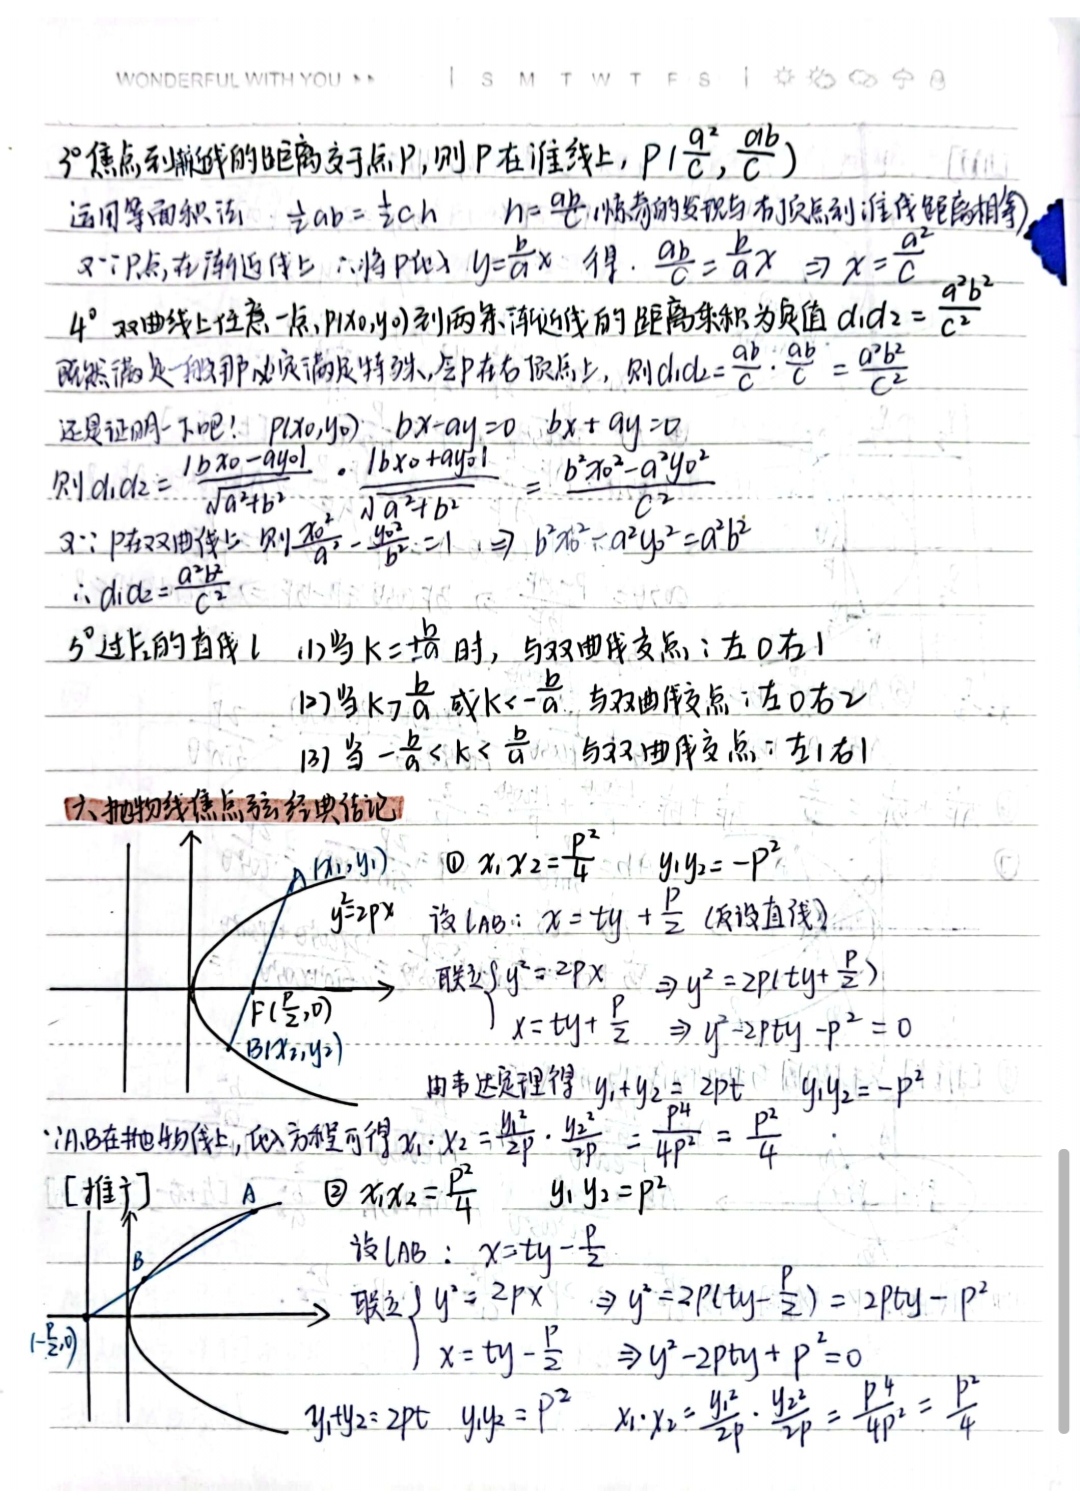 WONDERFUL WITH YOU
S M T W T F S
3° 焦点到渐近线的距离交于点P,则P在准线上, P(a²/c, ab/c)
运用等面积法 ½ab=½ch h=ab/c (惊奇的发现与右顶点到准线距离相等)
又∵P点在渐近线上 ∴将P代入 y=b/a x 得. ab/c=b/a x ⇒ x=a²/c
4° 双曲线上任意一点,P(x₀,y₀)到两条渐近线的距离乘积为定值 d₁d₂=a²b²/c²
既然满足一般那必定满足特殊,令P在右顶点上,则d₁d₂=ab/c·ab/c=a²b²/c²
还是证明一下吧! P(x₀,y₀) bx-ay=0 bx+ay=0
则d₁d₂=|bx₀-ay₀|/√a²+b² · |bx₀+ay₀|/√a²+b² = b²x₀²-a²y₀²/c²
又∵P在双曲线上 则x₀²/a²-y₀²/b²=1 ⇒ b²x₀²-a²y₀²=a²b²
∴d₁d₂=a²b²/c²
5° 过F₂的直线l (1)当K=±b/a时,与双曲线交点:左0右1
(2)当K>b/a或K<-b/a 与双曲线交点:左0右2
(3)当-b/a<K<b/a 与双曲线交点:左1右1
六.抛物线焦点弦经典结论
A(x₁,y₁) ① x₁x₂=p²/4 y₁y₂=-p²
y²=2px 设lAB: x=ty+p/2 (反设直线)
联立{y²=2px ⇒y²=2p(ty+p/2)
F(p/2,0) x=ty+p/2 ⇒y²-2pty-p²=0
B(x₂,y₂)
由韦达定理得 y₁+y₂=2pt y₁y₂=-p²
∵A,B在抛物线上,代入方程可得x₁·x₂=y₁²/2p·y₂²/2p=p⁴/4p²=p²/4
[推广] A ② x₁x₂=p²/4 y₁y₂=p²
B 设lAB: x=ty-p/2
联立{y²=2px ⇒y²=2p(ty-p/2)=2pty-p²
(-p/2,0) x=ty-p/2 ⇒y²-2pty+p²=0
y₁+y₂=2pt y₁y₂=p² x₁·x₂=y₁²/2p·y₂²/2p=p⁴/4p²=p²/4